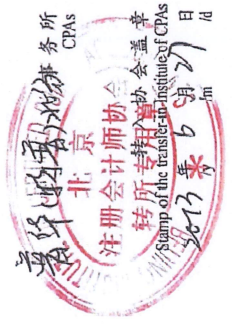 事务所
CPAs
北京
注册会计师协会
转所专用章
转入协会盖章
Stamp of the transfer-in Institute of CPAs
2013年6月27日
/y /m /d